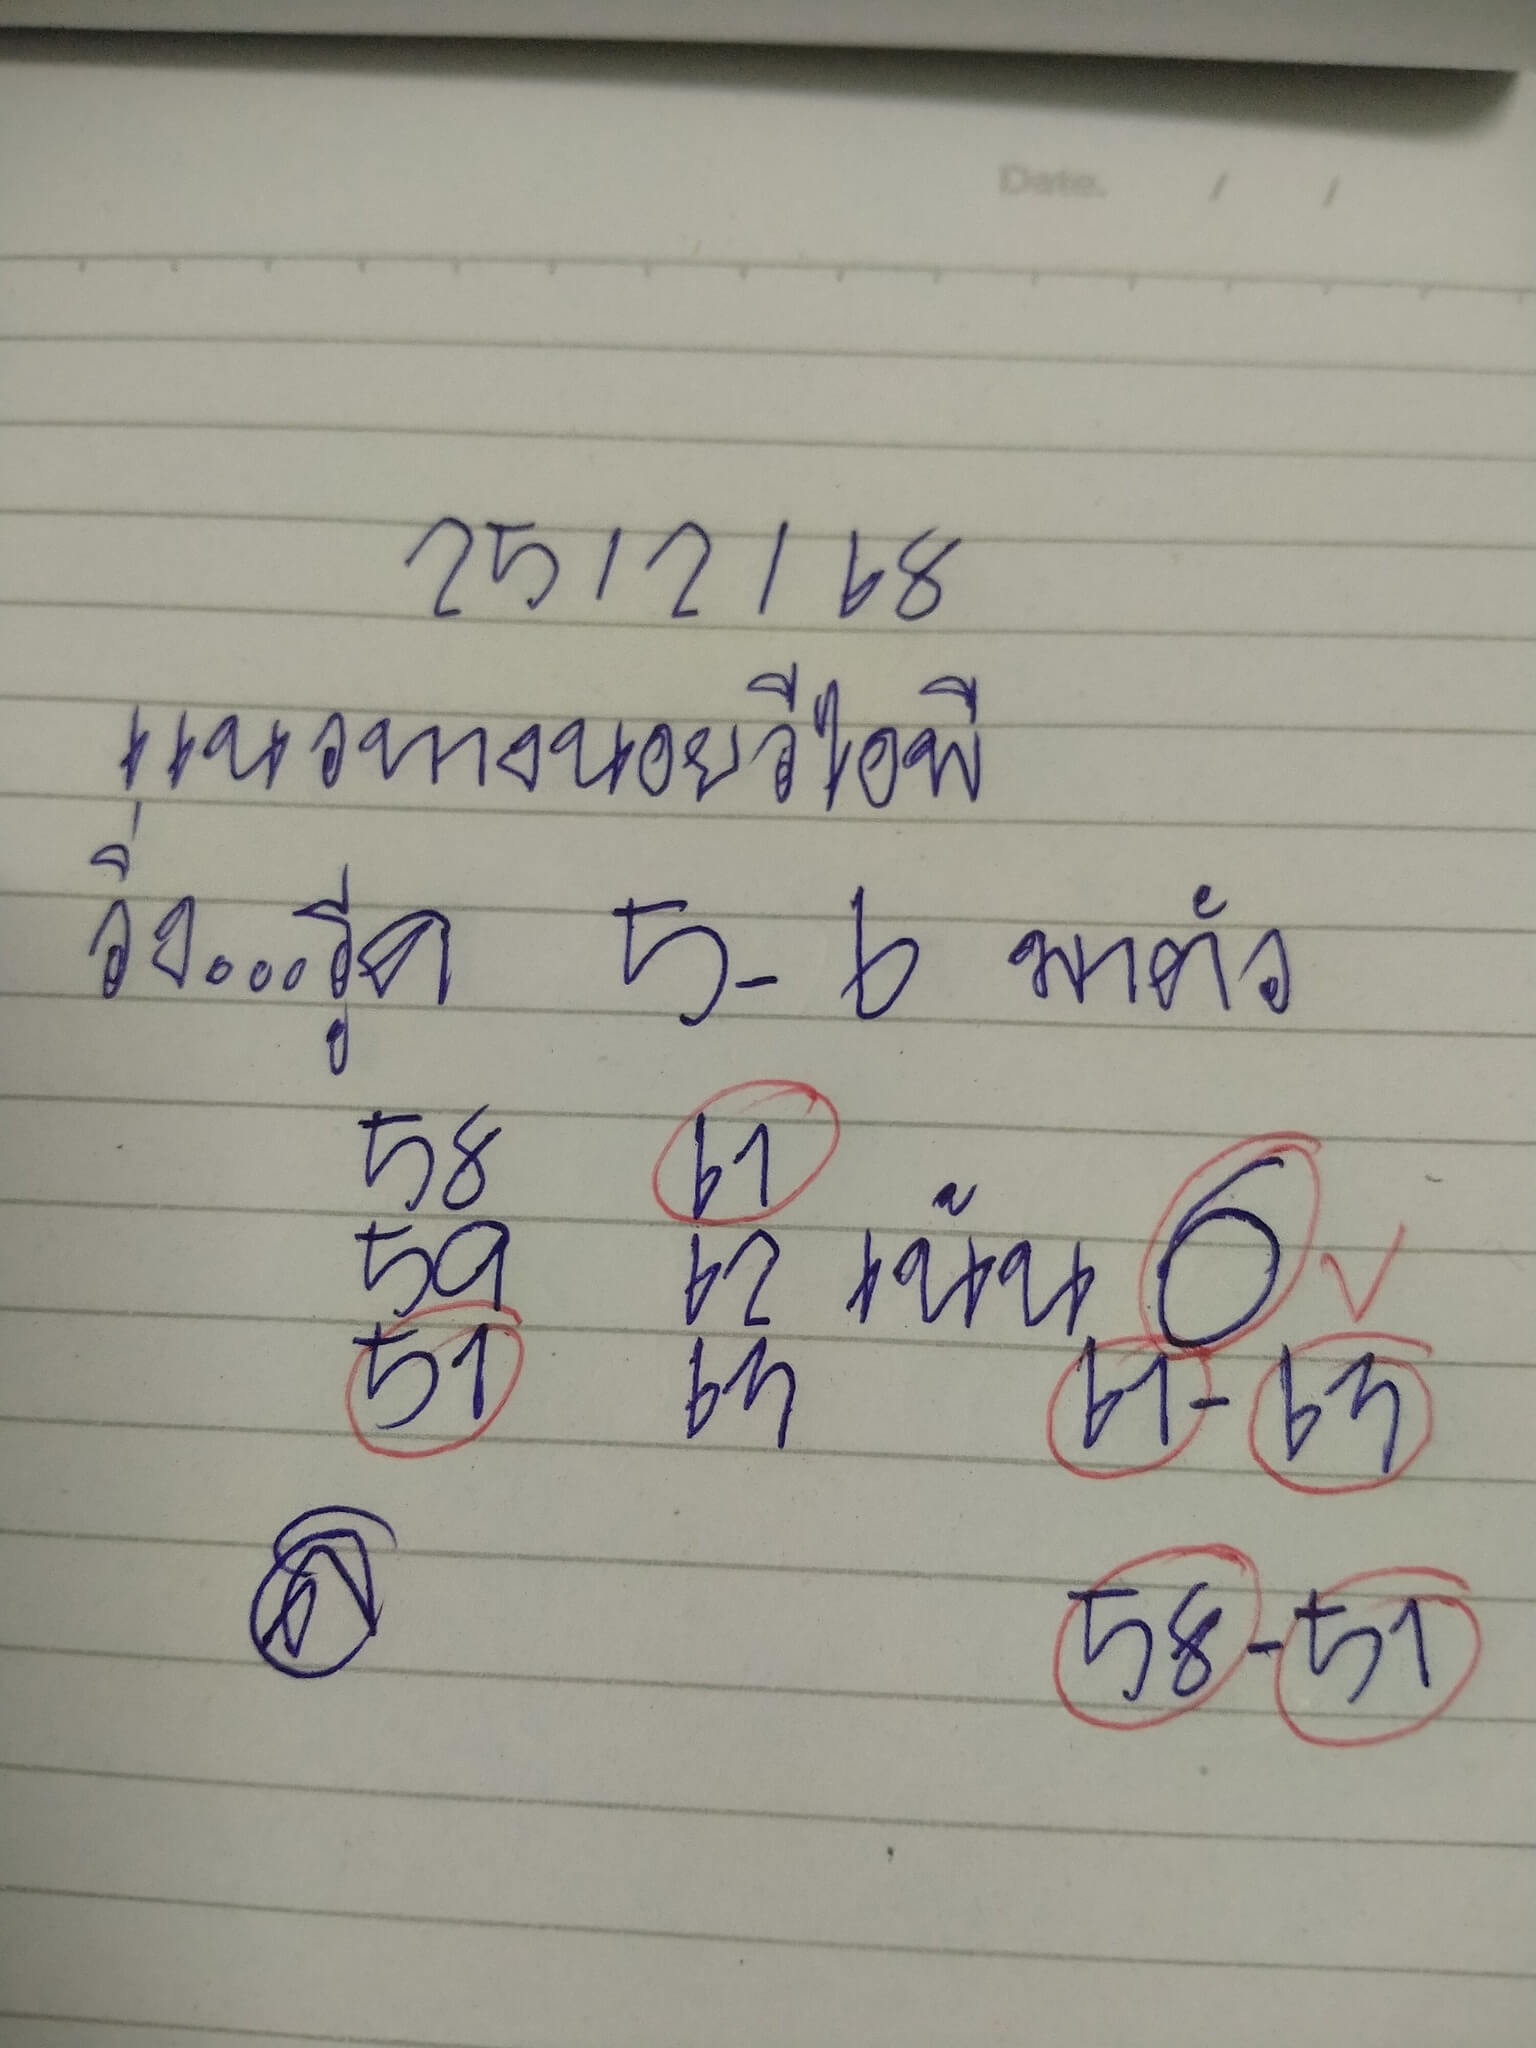 Date. / /
25/2/68
แนวทางนอยวีไอพี
วิ่ง...รูีด 5-6 มาตัว
58 61
59 62 เน้น 6 ✓
51 63 61-63
58-51